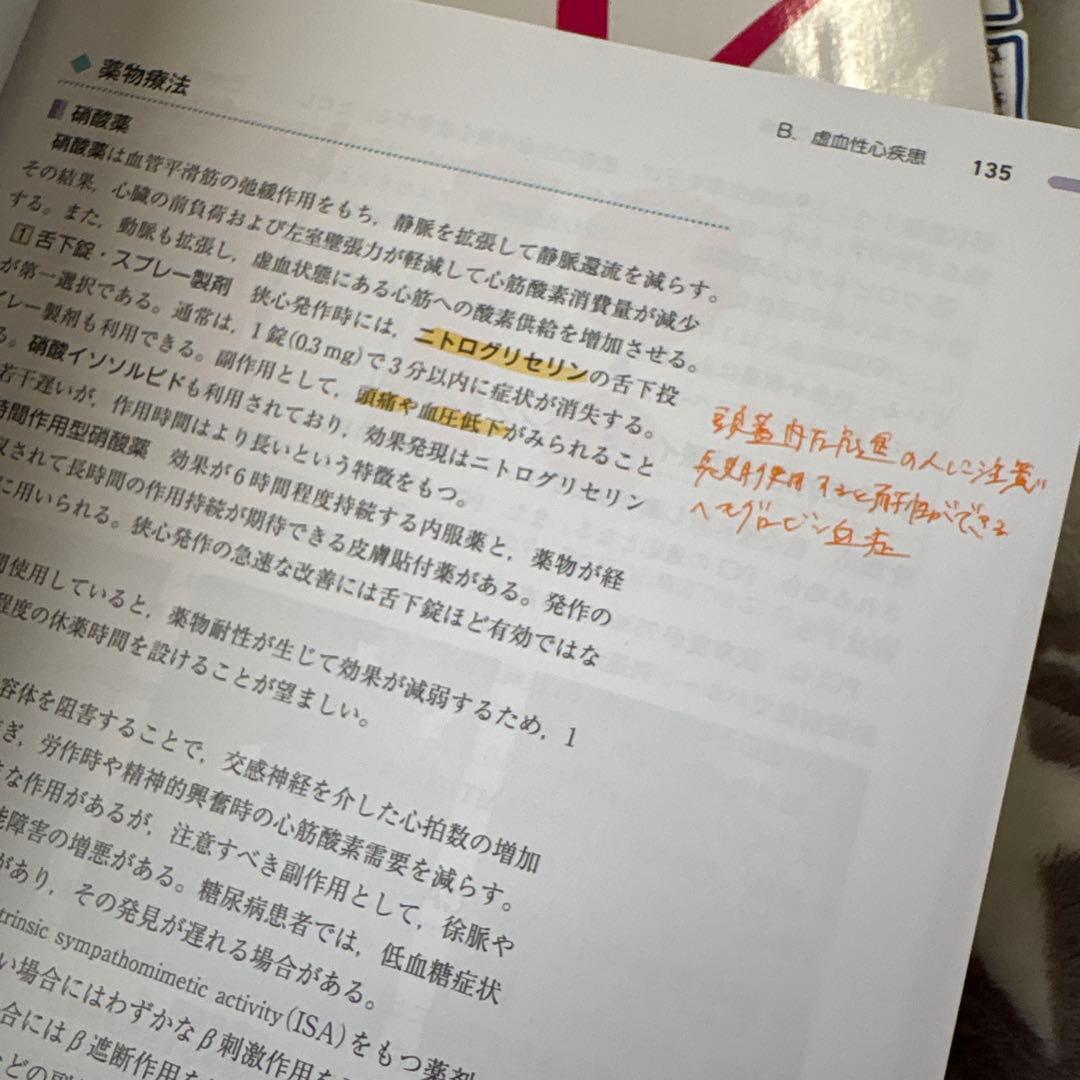 B. 虚血性心疾患 135
◆薬物療法
硝酸薬
硝酸薬は血管平滑筋の弛緩作用をもち，静脈を拡張して静脈還流を減らす。
その結果，心臓の前負荷および左室壁張力が軽減して心筋酸素消費量が減少
する。また，動脈も拡張し，虚血状態にある心筋への酸素供給を増加させる。
1 舌下錠・スプレー製剤 狭心発作時には，ニトログリセリンの舌下投
が第一選択である。通常は，1錠(0.3 mg)で3分以内に症状が消失する。
レー製剤も利用できる。副作用として，頭痛や血圧低下がみられること
る。硝酸イソソルビドも利用されており，効果発現はニトログリセリン
若干遅いが，作用時間はより長いという特徴をもつ。
時間作用型硝酸薬 効果が6時間程度持続する内服薬と，薬物が経
収されて長時間の作用持続が期待できる皮膚貼付薬がある。発作の
に用いられる。狭心発作の急速な改善には舌下錠ほど有効ではな
間使用していると，薬物耐性が生じて効果が減弱するため，1
程度の休薬時間を設けることが望ましい。
容体を阻害することで，交感神経を介した心拍数の増加
ぎ，労作時や精神的興奮時の心筋酸素需要を減らす。
な作用があるが，注意すべき副作用として，徐脈や
能障害の増悪がある。糖尿病患者では，低血糖症状
があり，その発見が遅れる場合がある。
trinsic sympathomimetic activity(ISA)をもつ薬剤
い場合にはわずかなβ刺激作用を
合にはβ遮断作用を
どの副
頭蓋内圧亢進の人に注意
長期使用すると耐性ができる
ヘモグロビン血症